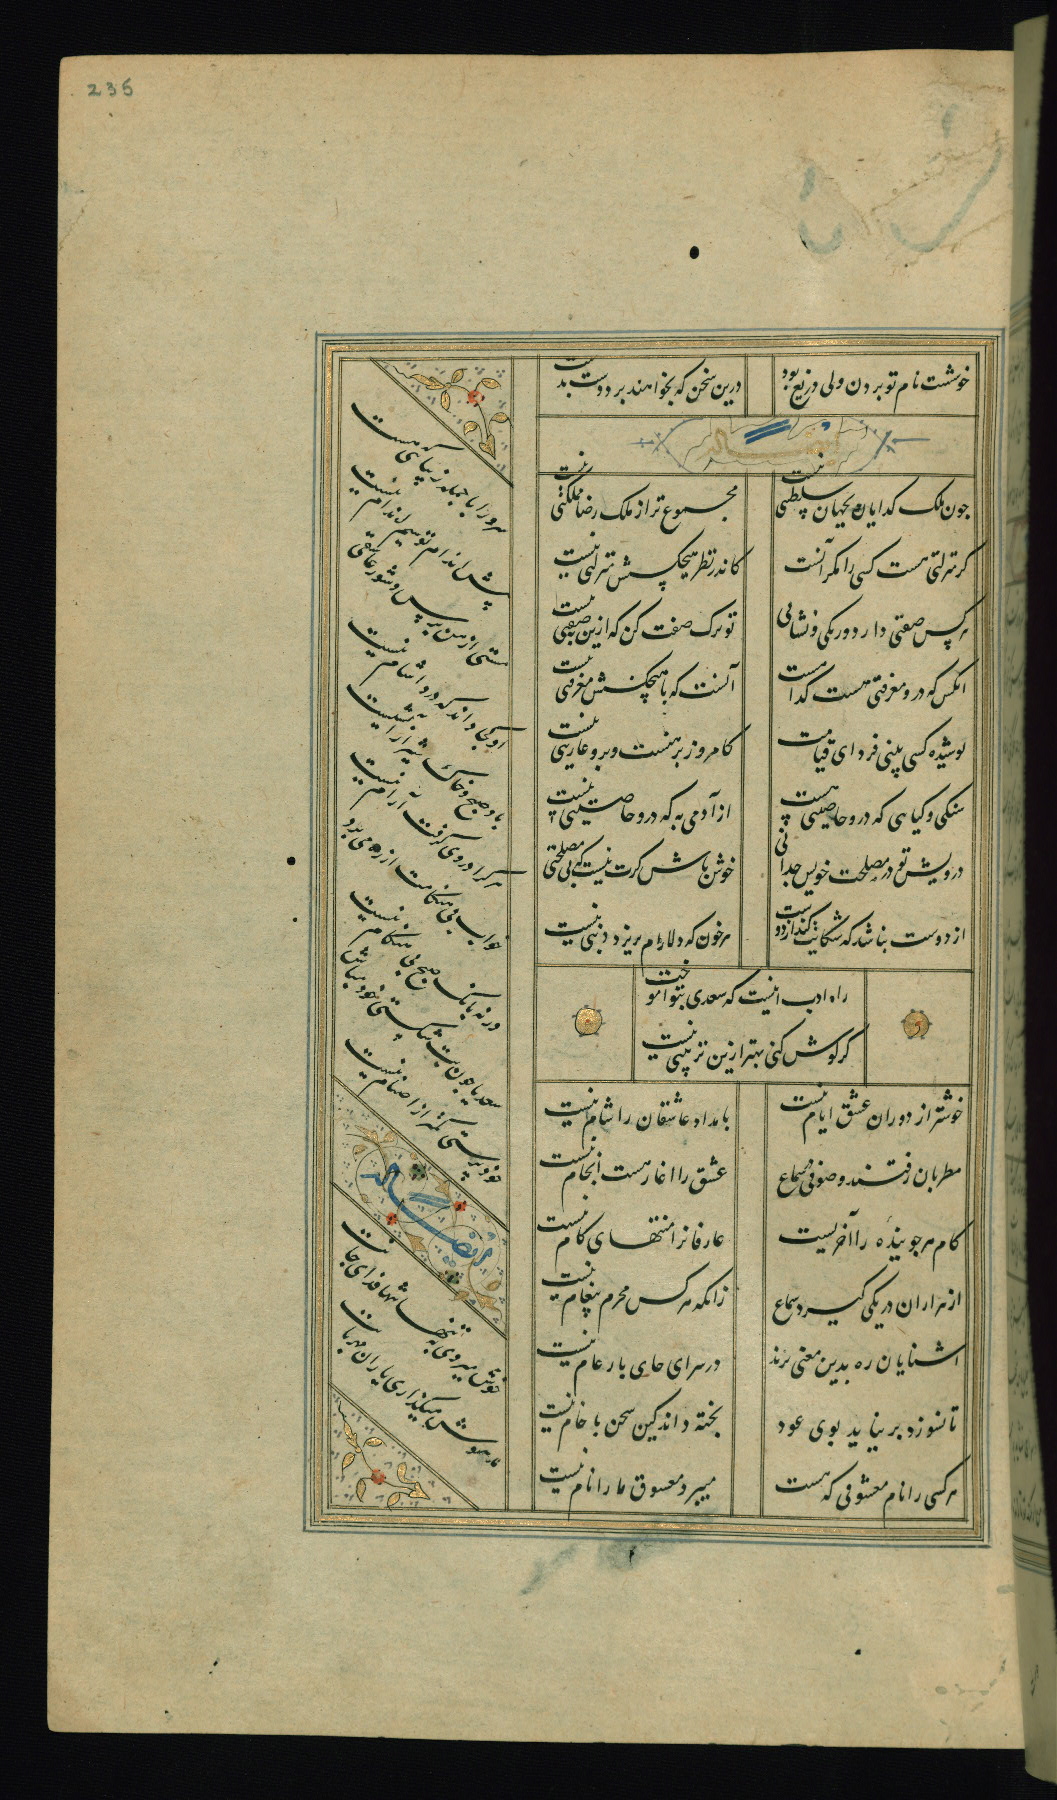 235
خوشست نام تو بردن ولی دریغ بود
درین سخن که بخواهند برد دست بدست
ایضا له
چون ملک گدایان بجهان سلطنتی نیست
مجموع‌تر از ملک رضا مملکتی نیست
گر منزلتی هست کسی را مگر آنست
کاندر نظر هیچکسش منزلتی نیست
هرکس صفتی دارد و رنگی و نشانی
تو ترک صفت کن که ازین به صفتی نیست
آنکس که درو معرفتی هست کدامست
آنست که با هیچکسش معرفتی نیست
پوشیده کسی بینی فردای قیامت
کامروز برهنست و برو عاریتی نیست
سنگی و گیاهی که درو خاصیتی هست
از آدمی به که درو خاصیتی نیست
درویش تو در مصلحت خویش چه دانی
خوش باش گرت نیست که بی مصلحتی نیست
از دوست نباشد که شکایت کند ار دوست
هر خون که دلارام بریزد دیتی نیست
راه ادب اینست که سعدی بتو آموخت
گر گوش کنی بهتر ازین تربیتی نیست
خوشتر از دوران عشق ایام نیست
بامداد عاشقان را شام نیست
مطربان رفتند و صوفی در سماع
عشق را آغاز هست انجام نیست
کام هر جوینده را آخریست
عارفانرا منتهای کام نیست
از هزاران در یکی گیرد سماع
زانکه هرکس محرم پیغام نیست
آشنایان ره بدین معنی برند
در سرای خاص بار عام نیست
تا نسوزد بر نیاید بوی عود
پخته داند کین سخن با خام نیست
هرکسی را نام معشوقی که هست
میبرد معشوق ما را نام نیست
سرو را با جمله زیبایی که هست
پیش اندام تو هیچ اندام نیست
مستی از من پرس و شور عاشقی
او کجا داند که درد آشام نیست
باد صبح و خاک شیراز آتشیست
هرکرا در وی گرفت آرام نیست
خواب بی هنگامت از ره میبرد
ورنه بانگ صبح بی هنگام نیست
سعدیا چون بت شکستی خود مباش
خودپرستی کمتر از اصنام نیست
ایضا له
خوش میروی به تنها تنها فدای جانت
مدهوش میگذاری یاران مهربانت